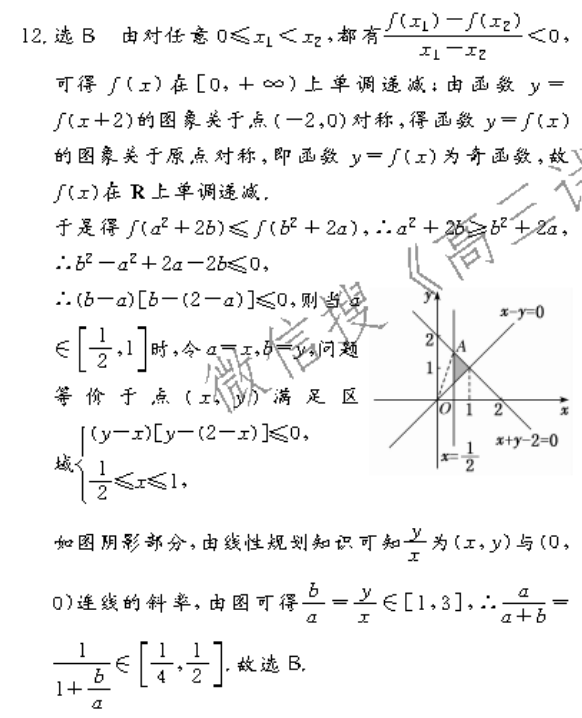 12. 选 B 由对任意 0≤x₁<x₂,都有 \frac{f(x₁)-f(x₂)}{x₁-x₂}<0,
可得 f(x)在[0,+∞)上单调递减;由函数 y=
f(x+2)的图象关于点(-2,0)对称,得函数 y=f(x)
的图象关于原点对称,即函数 y=f(x)为奇函数,故
f(x)在 R 上单调递减.
于是得 f(a²+2b)≤f(b²+2a),∴a²+2b≥b²+2a,
∴b²-a²+2a-2b≤0,
∴(b-a)[b-(2-a)]≤0,则当 a
∈[\frac{1}{2},1]时,令 a=x,b=y,问题
等价于点(x,y)满足区
域{(y-x)[y-(2-x)]≤0,
\frac{1}{2}≤x≤1,
y
x-y=0
2
A
1
O 1 2 x
x+y-2=0
x=\frac{1}{2}
如图阴影部分,由线性规划知识可知\frac{y}{x}为(x,y)与(0,
0)连线的斜率,由图可得\frac{b}{a}=\frac{y}{x}∈[1,3],∴\frac{a}{a+b}=
\frac{1}{1+\frac{b}{a}}∈[\frac{1}{4},\frac{1}{2}].故选 B.
微信搜《高三